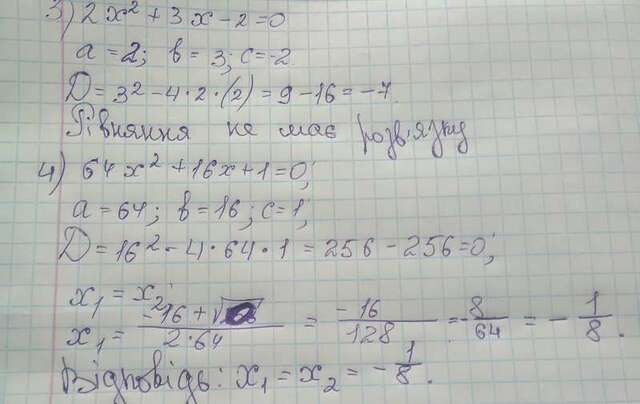 3) 2x² + 3x - 2 = 0
a = 2; b = 3; c = -2
D = 3² - 4·2·(2) = 9 - 16 = -7.
Рівняння не має розв'язку
4) 64x² + 16x + 1 = 0;
a = 64; b = 16; c = 1;
D = 16² - 4·64·1 = 256 - 256 = 0;
x₁ = x₂;
x₁ = (-16 + √)/(2·64) = -16/128 = -8/64 = -1/8.
Відповідь: x₁ = x₂ = -1/8.